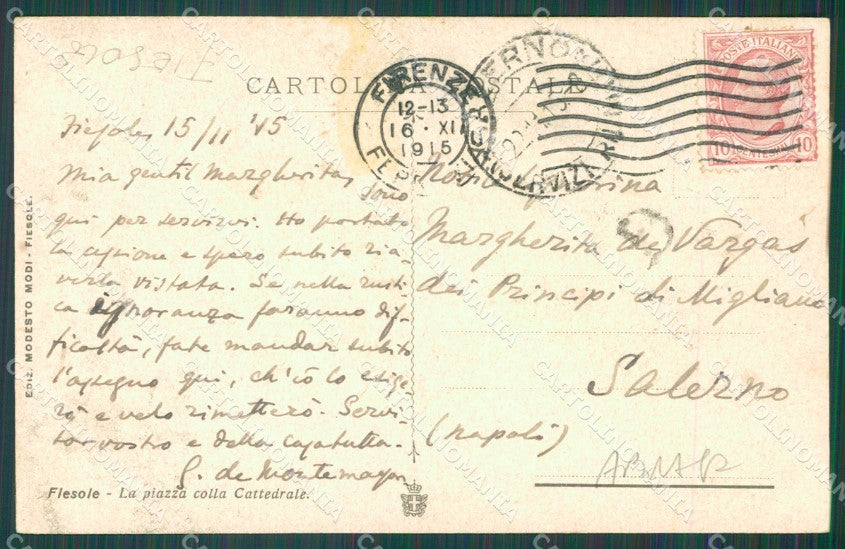 Fiesole
CARTOLINA POSTALE
FIRENZE
12-13
16·XI
1915
POSTE ITALIANE
10 CENTESIMI 10
Fiesole 15/11 '15
Mia gentil Margherita,
sono
qui per servirvi. Ho portato
la cessione e spero subito ria-
verla vistata. Se nella rusti-
ca ignoranza faranno dif-
ficoltà, fate mandar subito
l'assegno qui, ch'io lo esige-
rò e velo rimetterò. Servi-
tor vostro e della casa tutta.
G. de Montemayor
Margherita de Vargas
dei Principi di Migliano
Salerno
(Napoli)
EDIZ. MODESTO MODI - FIESOLE.
Fiesole - La piazza colla Cattedrale.
CARTOLINOMANIA